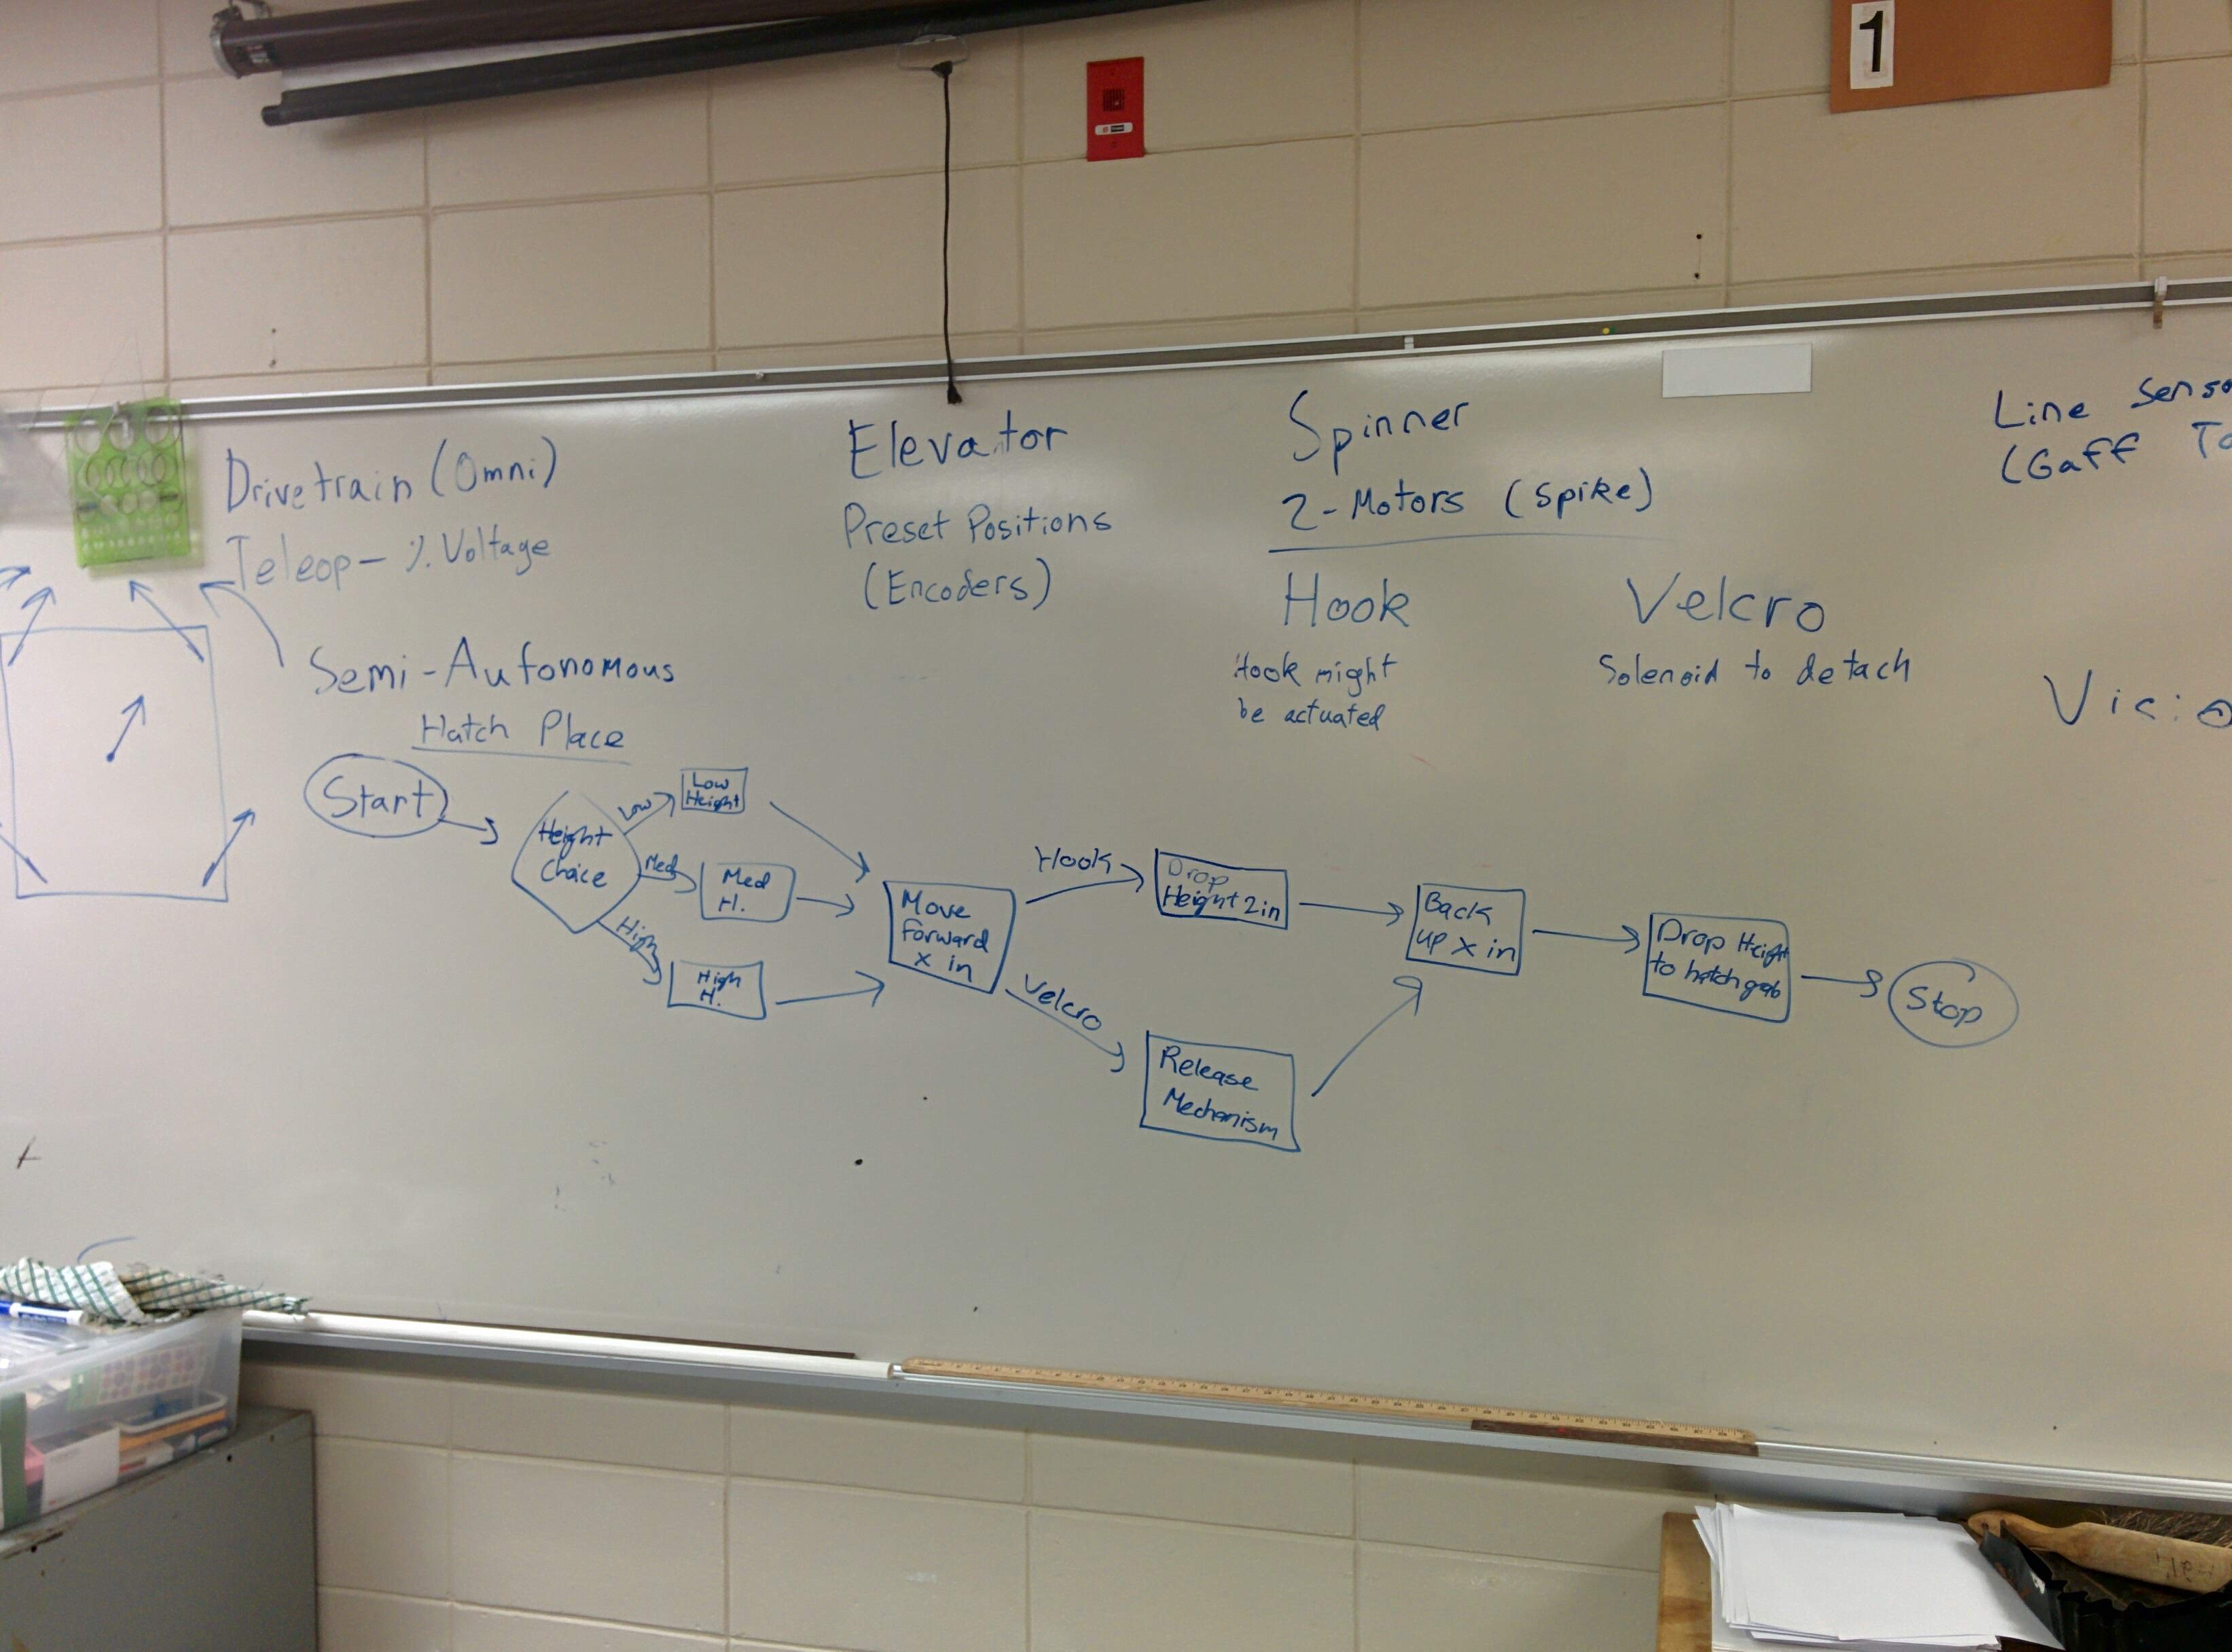 1
Drivetrain (Omni)
Teleop - % Voltage
Semi-Autonomous
Hatch Place
Elevator
Preset Positions
(Encoders)
Spinner
2-Motors (Spike)
Hook
Hook might
be actuated
Velcro
Solenoid to detach
Line Senso
(Gaff Ta
Visio
Start
Height
Choice
Low
Low
Height
Med
Med
H.
High
High
H.
Move
Forward
x in
Hook
Drop
Height 2in
Velcro
Release
Mechanism
Back
up x in
Drop Height
to hatch grab
Stop